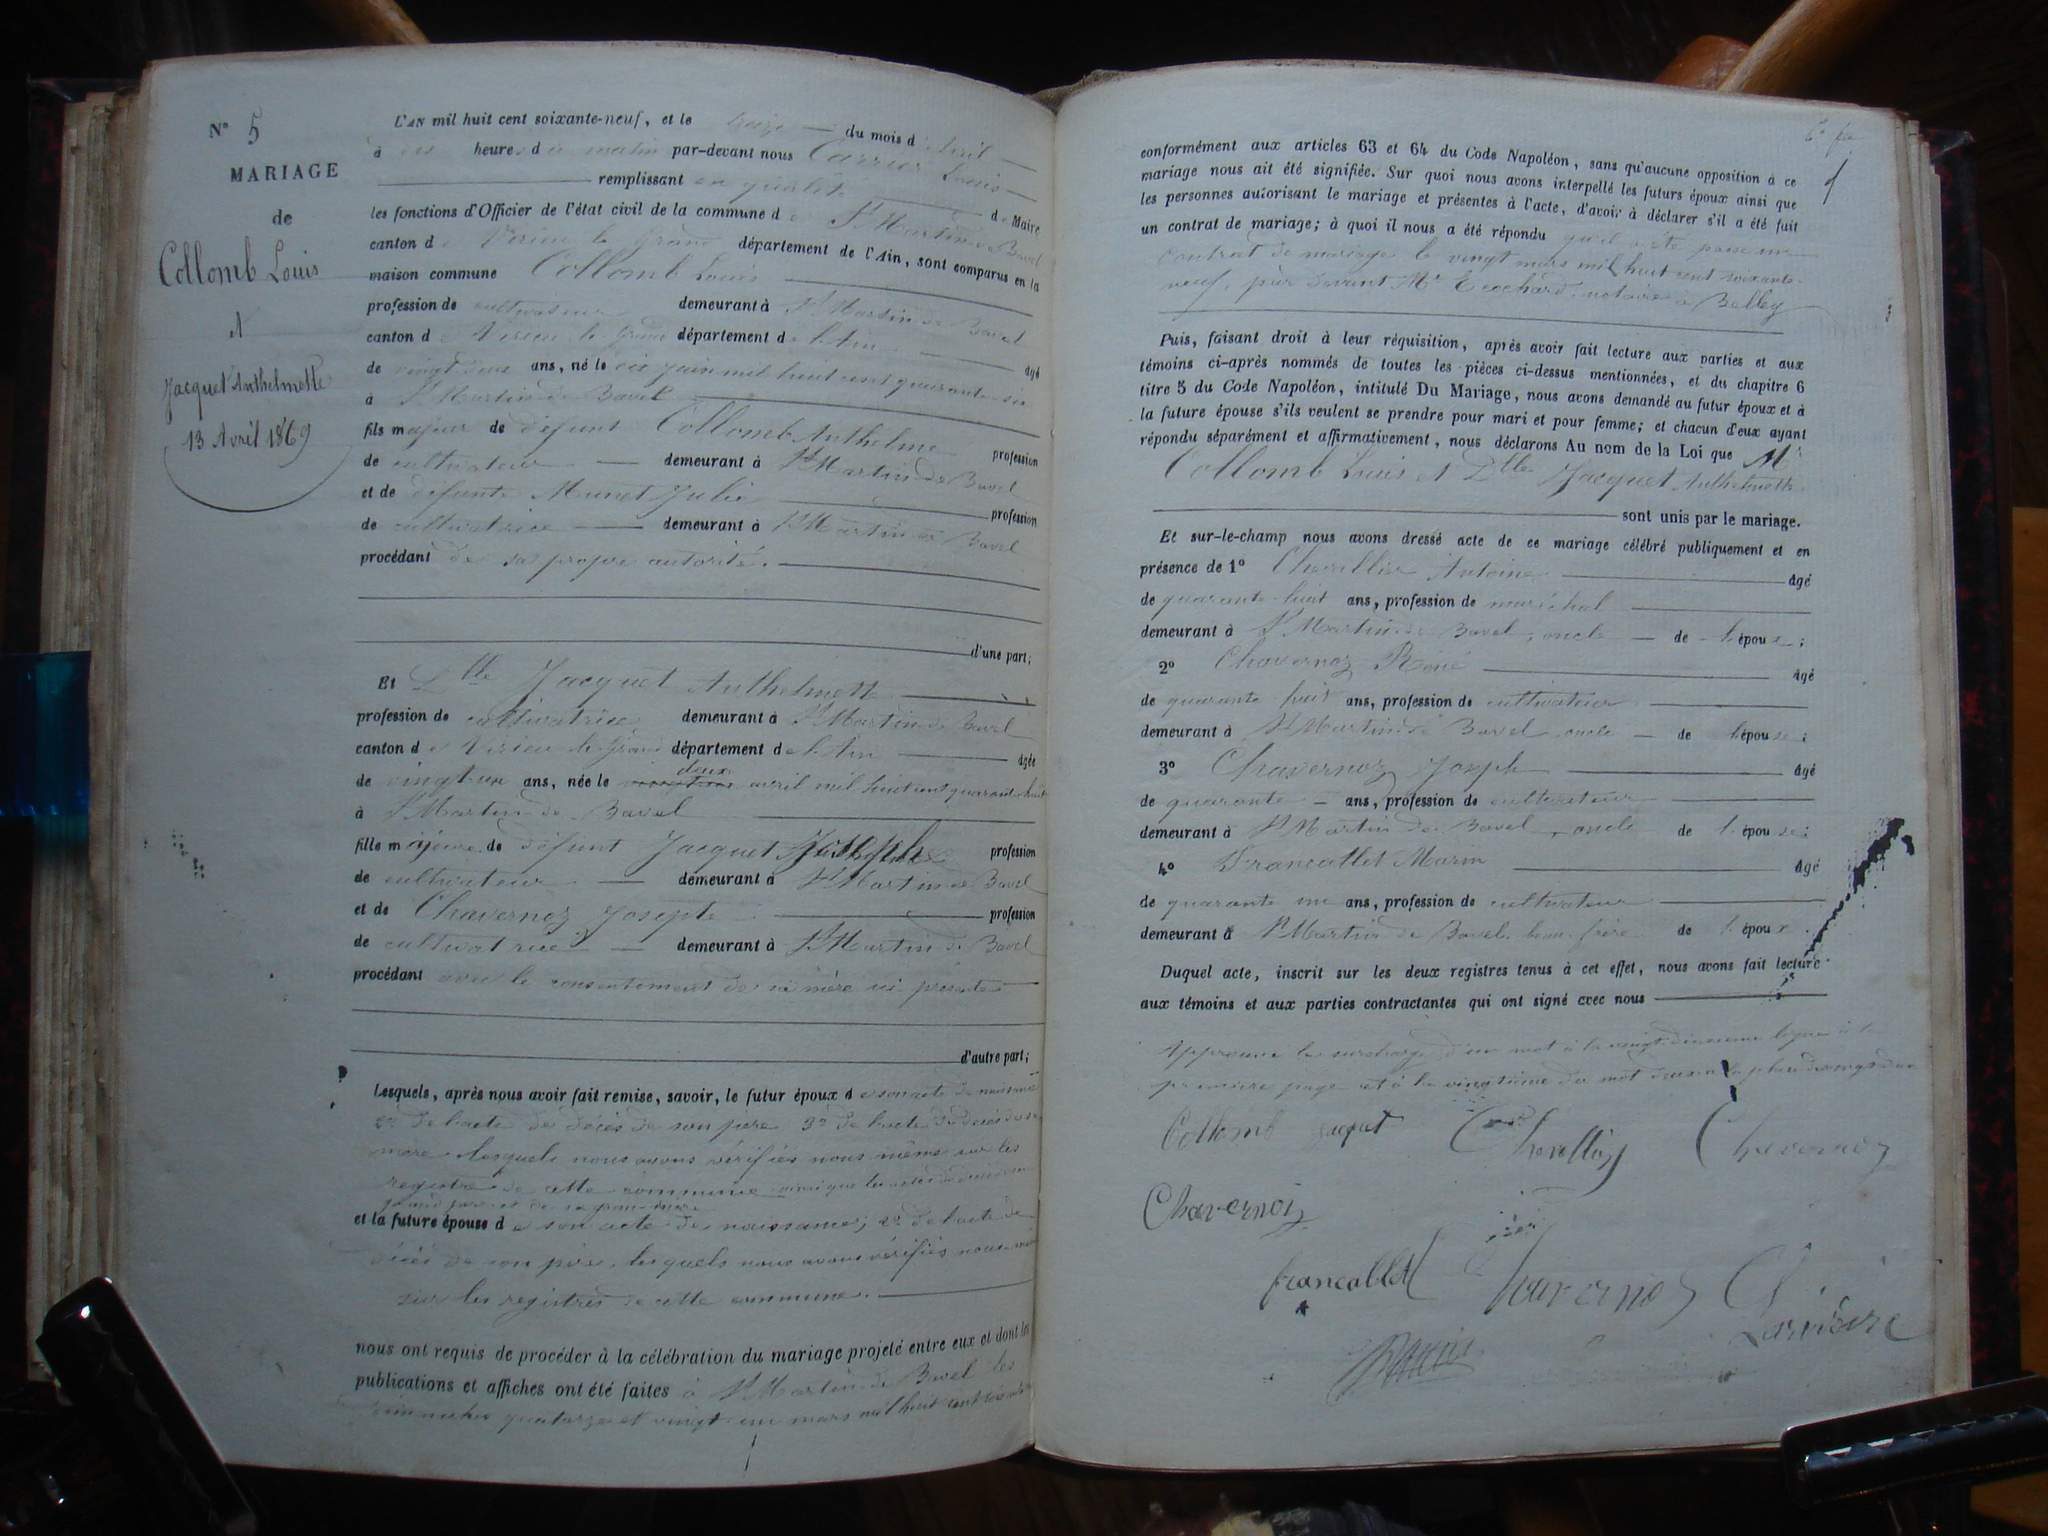 N° 5
MARIAGE
de
Collomb Louis
et
Jacquet Anthelmette
13 Avril 1869
L'AN mil huit cent soixante-neuf, et le treize du mois d'Avril
à heures du matin par-devant nous Carrier Louis
remplissant en qualité de Maire
les fonctions d'Officier de l'état civil de la commune de St Martin de Bavel
canton de Virieu le Grand département de l'Ain, sont comparus en la
maison commune Collomb Louis
profession de cultivateur demeurant à St Martin de Bavel
canton de Virieu le Grand département de l'Ain âgé
de vingt deux ans, né le dix juin mil huit cent quarante six
à St Martin de Bavel
fils majeur de défunt Collomb Anthelme profession
de cultivateur demeurant à St Martin de Bavel
et de défunte Munet Julie profession
de cultivatrice demeurant à St Martin de Bavel
procédant de sa propre autorité.
d'une part;
Et Dlle Jacquet Anthelmette
profession de cultivatrice demeurant à St Martin de Bavel
canton de Virieu le Grand département de l'Ain âgée
de vingt un ans, née le deux avril mil huit cent quarante huit
à St Martin de Bavel
fille majeure de défunt Jacquet profession
de cultivateur demeurant à St Martin de Bavel
et de Chavernoz Josephte profession
de cultivatrice demeurant à St Martin de Bavel
procédant avec le consentement de sa mère ici présente
d'autre part;
Lesquels, après nous avoir fait remise, savoir, le futur époux de son acte de naissance
2° de l'acte de décès de son père 3° de l'acte de décès de sa
mère lesquels nous avons vérifiés nous même sur les
registres de cette commune ainsi que les actes de décès de son
grand père et de sa grand mère
et la future épouse de son acte de naissance; 2° de l'acte de
décès de son père, lesquels nous avons vérifiés nous même
sur les registres de cette commune.
nous ont requis de procéder à la célébration du mariage projeté entre eux et dont les
publications et affiches ont été faites à St Martin de Bavel les
dimanches quatorze et vingt un mars mil huit cent soixante
conformément aux articles 63 et 64 du Code Napoléon, sans qu'aucune opposition à ce
mariage nous ait été signifiée. Sur quoi nous avons interpellé les futurs époux ainsi que
les personnes autorisant le mariage et présentes à l'acte, d'avoir à déclarer s'il a été fait
un contrat de mariage; à quoi il nous a été répondu qu'il a été passé un
contrat de mariage le vingt mars mil huit cent soixante
neuf, par devant Me Ecochard notaire à Belley
Puis, faisant droit à leur réquisition, après avoir fait lecture aux parties et aux
témoins ci-après nommés de toutes les pièces ci-dessus mentionnées, et du chapitre 6
titre 5 du Code Napoléon, intitulé Du Mariage, nous avons demandé au futur époux et à
la future épouse s'ils veulent se prendre pour mari et pour femme; et chacun d'eux ayant
répondu séparément et affirmativement, nous déclarons Au nom de la Loi que Mr
Collomb Louis et Dlle Jacquet Anthelmette
sont unis par le mariage.
Et sur-le-champ nous avons dressé acte de ce mariage célébré publiquement et en
présence de 1° Chevillier Antoine âgé
de quarante huit ans, profession de maréchal
demeurant à St Martin de Bavel, oncle de l'épouse;
2° Chavernoz René âgé
de quarante huit ans, profession de cultivateur
demeurant à St Martin de Bavel oncle de l'épouse;
3° Chavernoz Joseph âgé
de quarante ans, profession de cultivateur
demeurant à St Martin de Bavel, oncle de l'épouse;
4° Francallet Marin âgé
de quarante un ans, profession de cultivateur
demeurant à St Martin de Bavel beau frère de l'époux.
Duquel acte, inscrit sur les deux registres tenus à cet effet, nous avons fait lecture
aux témoins et aux parties contractantes qui ont signé avec nous
Approuvé la surcharge d'un mot à la vingt deuxième ligne à la
première page et à la vingtième du mot deux
Collomb Jacquet Chavernoz
Chavernoz
francallet Chavernoz